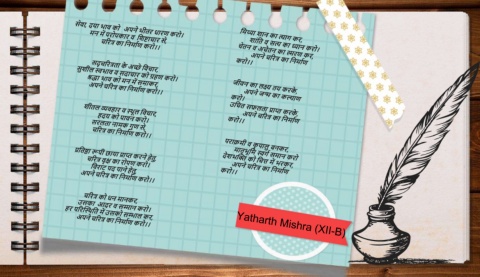 सेवा, दया भाव को अपने भीतर धारण करो।
मन में परोपकार व शिष्टाचार से,
चरित्र का निर्माण करो।।
सदृचरित्रता के अच्छे विचार,
सुशील स्वभाव व सदाचार को ग्रहण करो।
श्रद्धा भाव को मन में समाकर,
अपने चरित्र का निर्माण करो।।
शीतल व्यवहार व स्थूल विचार,
हृदय को पावन करो।
सरलता नामक गुण से,
चरित्र का निर्माण करो।।
प्रतिष्ठा रूपी छाया प्राप्त करने हेतु,
चरित्र वृक्ष का रोपण करो।
विराट पद पाने हेतु,
अपने चरित्र का निर्माण करो।।
चरित्र को धन मानकर,
उसका आदर व सम्मान करो।
हर परिस्थिति में उसको सम्भाल कर,
अपने चरित्र का निर्माण करो।।
मिथ्या ज्ञान का त्याग कर,
शांति व सत्य का ध्यान करो।
चेतन व अचेतन का स्मरण कर,
अपने चरित्र का निर्माण
करो।।
जीवन का लक्ष्य तय करके,
अपने जन्म का कल्याण
करो।
उचित सफलता प्राप्त करके,
अपने चरित्र का निर्माण
करो।।
पराक्रमी व कृपालु बनकर,
मातृभूमि स्वर्ग समान करो
देशभक्ति को चित्त में भरकर,
अपने चरित्र का निर्माण
करो।।
Yatharth Mishra (XII-B)